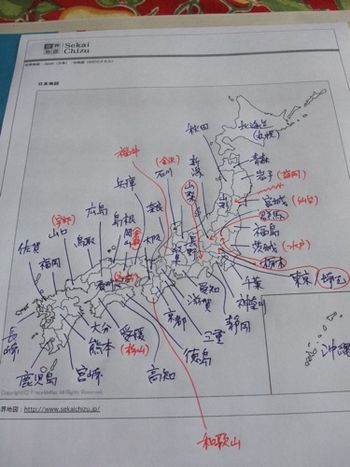 世界地図 Sekai Chizu
日本地図
秋田
北海道
(札幌)
青森
岩手 (盛岡)
宮城 (仙台)
群馬
福島
茨城 (水戸)
栃木
東京 埼玉
千葉
神奈川
静岡
三重
愛知
滋賀
山梨
長野
新潟
(金沢)
石川
福井
兵庫
奈良
大阪
京都
岐阜
島根
広島
鳥取
(宇部)
山口
佐賀
福岡
長崎
鹿児島
宮崎
熊本
大分
愛媛
(松山)
高知
徳島
和歌山
沖縄
世界地図 : http://www.sekaichizu.jp/